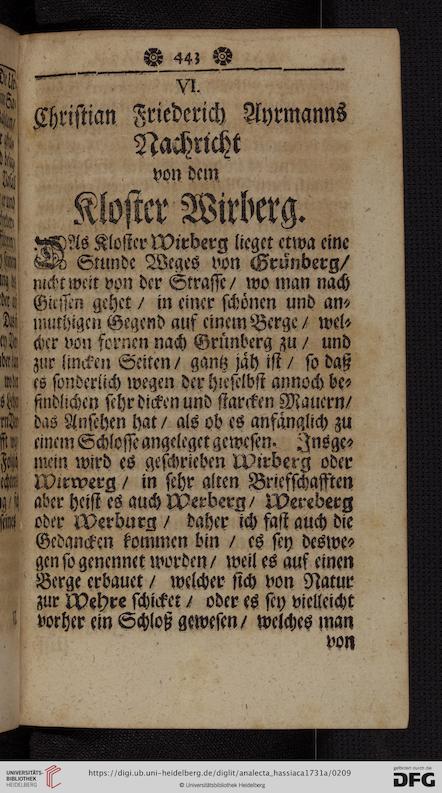 443
VI.
Christian Friederich Ayrmanns
Nachricht
von dem
Kloster Wirberg.
DAs Kloster Wirberg lieget etwa eine
Stunde Weges von Grünberg/
nicht weit von der Strasse/ wo man nach
Giessen gehet/ in einer schönen und an-
muthigen Gegend auf einem Berge/ wel-
cher von fornen nach Grünberg zu/ und
zur lincken Seiten/ gantz jäh ist/ so daß
es sonderlich wegen der hieselbst annoch be-
findlichen sehr dicken und starcken Mauern/
das Ansehen hat/ als ob es anfänglich zu
einem Schlosse angeleget gewesen. Insge-
mein wird es geschrieben Wirberg oder
Wirwerg/ in sehr alten Briefschafften
aber heist es auch Werberg/ Wereberg
oder Werburg/ daher ich fast auch die
Gedancken kommen bin/ es sey deswe-
gen so genennet worden/ weil es auf einen
Berge erbauet/ welcher sich von Natur
zur Wehre schicket/ oder es sey vielleicht
vorher ein Schloß gewesen/ welches man
von
UNIVERSITÄTS-
BIBLIOTHEK
HEIDELBERG
https://digi.ub.uni-heidelberg.de/diglit/analecta_hassiaca1731a/0209
© Universitätsbibliothek Heidelberg
gefördert durch die
DFG